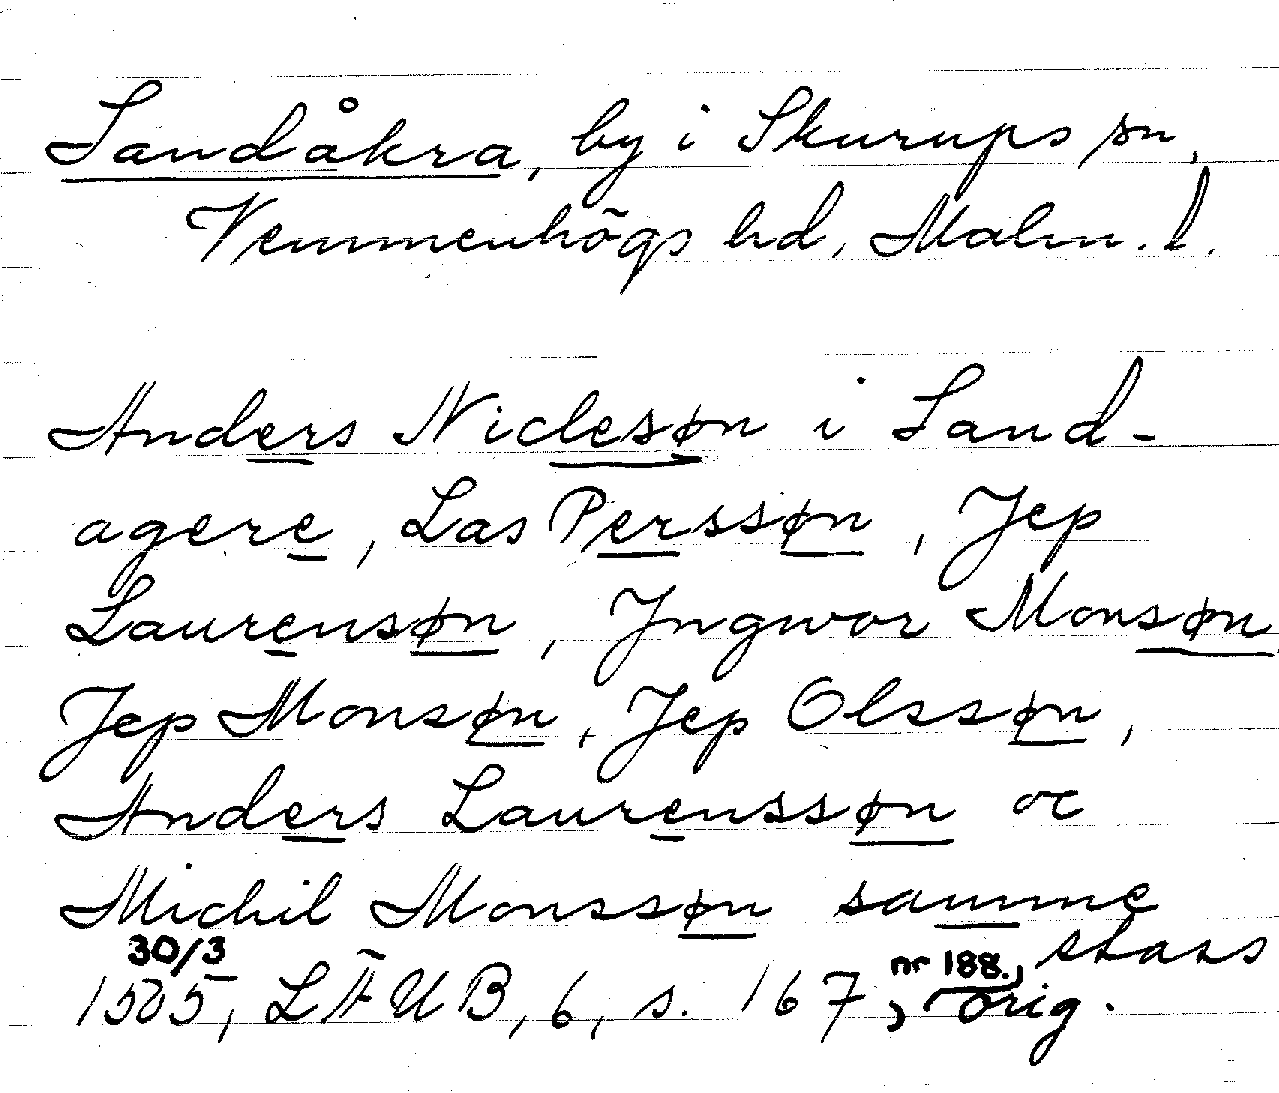 Sandåkra, by i Skurups sn,
Vemmenhögs hd, Malm. l.
Anders Niclesøn i Sand-
agere, Las Perssøn, Jep
Laurensøn, Jngwor Monsøn,
Jep Monsøn, Jep Olssøn,
Anders Laurenssøn oc
Michil Monssøn samme
stass
30/3 nr 188.,
1505, LÄUB, 6, s. 167, orig.